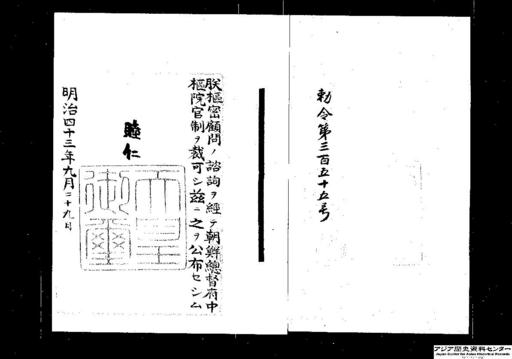 勅令第三百五十五号
朕枢密顧問ノ諮詢ヲ経テ朝鮮總督府中
枢院官制ヲ裁可シ茲ニ之ヲ公布セシム
睦仁
天皇御璽
明治四十三年九月二十九日
アジア歴史資料センター
Japan Center for Asian Historical Records